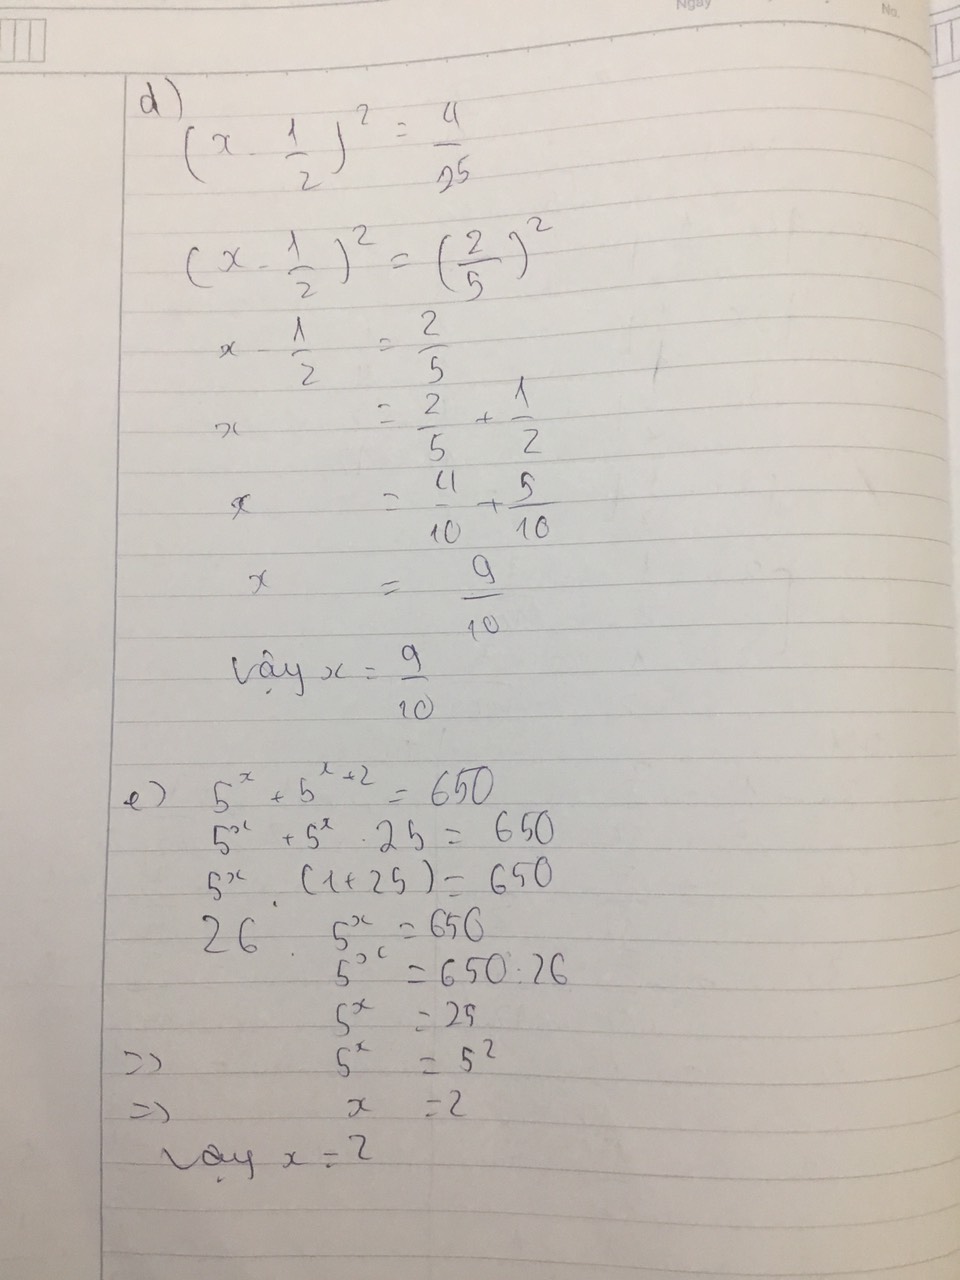 Ngày
No.
d)
(x - 1/2)² = 4/25
(x - 1/2)² = (2/5)²
x - 1/2 = 2/5
x = 2/5 + 1/2
x = 4/10 + 5/10
x = 9/10
Vậy x = 9/10
e) 5^x + 5^(x+2) = 650
5^x + 5^x . 25 = 650
5^x . (1+25) = 650
26 . 5^x = 650
5^x = 650 : 26
5^x = 25
=> 5^x = 5²
=> x = 2
Vậy x = 2